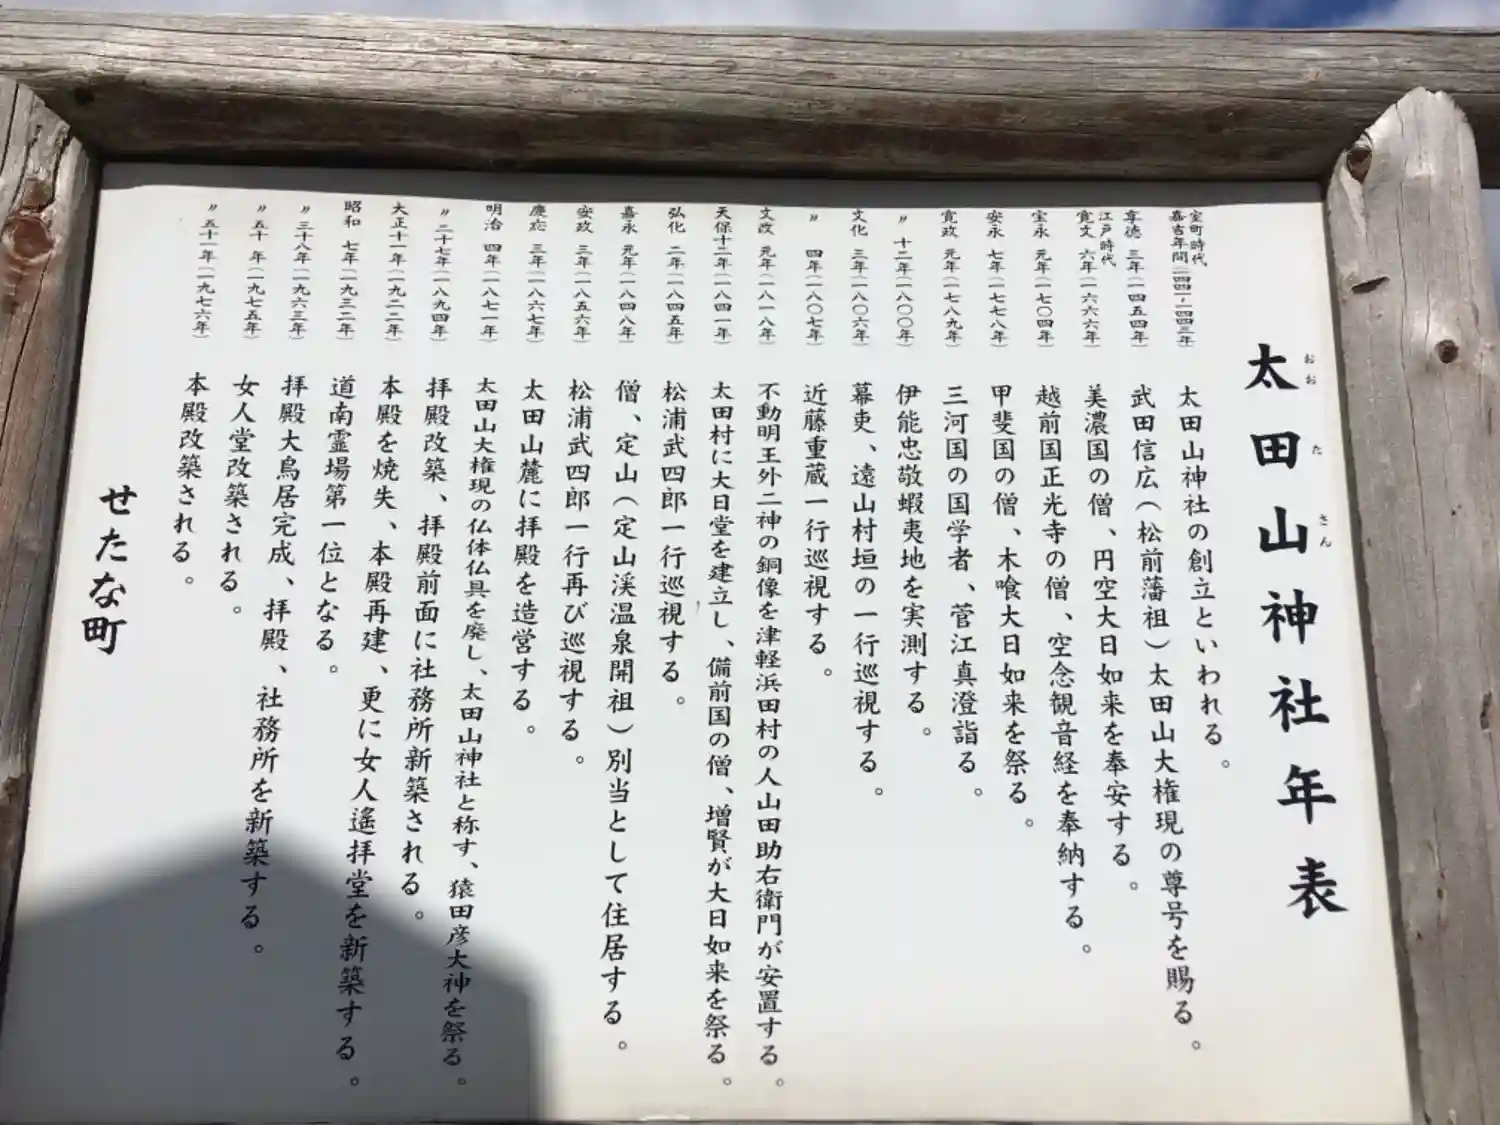 太田山神社年表
おおたさん
室町時代
嘉吉年間(一四四一~一四四三年) 太田山神社の創立といわれる。
享徳 三年(一四五四年) 武田信広(松前藩祖)太田山大権現の尊号を賜る。
江戸時代
寛文 六年(一六六六年) 美濃国の僧、円空大日如来を奉安する。
宝永 元年(一七〇四年) 越前国正光寺の僧、空念観音経を奉納する。
安永 七年(一七七八年) 甲斐国の僧、木喰大日如来を祭る。
寛政 元年(一七八九年) 三河国の国学者、菅江真澄詣る。
〃 十二年(一八〇〇年) 伊能忠敬蝦夷地を実測する。
文化 三年(一八〇六年) 幕吏、遠山村垣の一行巡視する。
〃 四年(一八〇七年) 近藤重蔵一行巡視する。
文政 元年(一八一八年) 不動明王外二神の銅像を津軽浜田村の人山田助右衛門が安置する。
天保十二年(一八四一年) 太田村に大日堂を建立し、備前国の僧、増賢が大日如来を祭る。
弘化 二年(一八四五年) 松浦武四郎一行巡視する。
嘉永 元年(一八四八年) 僧、定山(定山渓温泉開祖)別当として住居する。
安政 三年(一八五六年) 松浦武四郎一行再び巡視する。
慶応 三年(一八六七年) 太田山麓に拝殿を造営する。
明治 四年(一八七一年) 太田山大権現の仏体仏具を廃し、太田山神社と称す、猿田彦大神を祭る。
〃 二十七年(一八九四年) 拝殿改築、拝殿前面に社務所新築される。
大正十一年(一九二二年) 本殿を焼失、本殿再建、更に女人遙拝堂を新築する。
昭和 七年(一九三二年) 道南霊場第一位となる。
〃 三十八年(一九六三年) 拝殿大鳥居完成、拝殿、社務所を新築する。
〃 五十 年(一九七五年) 女人堂改築される。
〃 五十一年(一九七六年) 本殿改築される。
せたな町